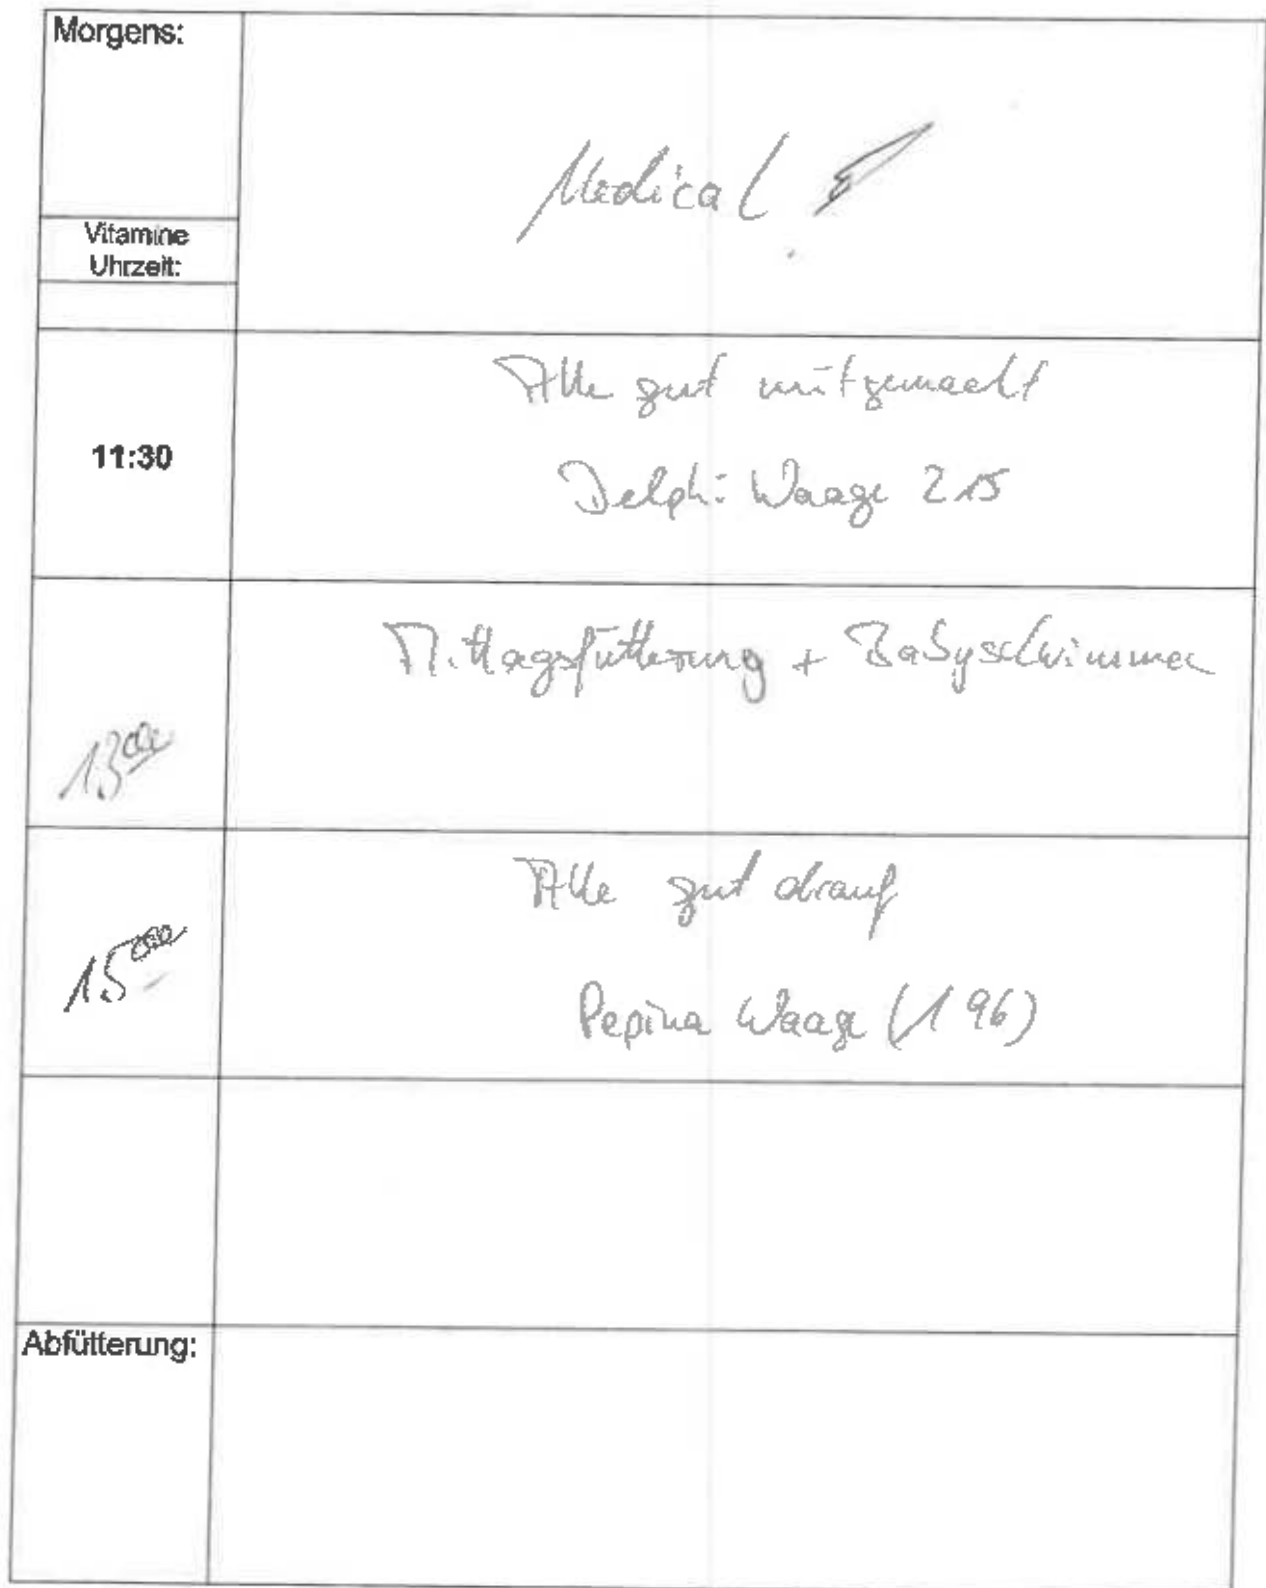 Morgens:
Medical!
Vitamine
Uhrzeit:
Alle gut mitgemacht
11:30
Delphi Waage 215
Mittagsfütterung + Babyschwimmen
13⁰⁰
Alle gut drauf
15⁰⁰
Pepina Waage (196)
Abfütterung: